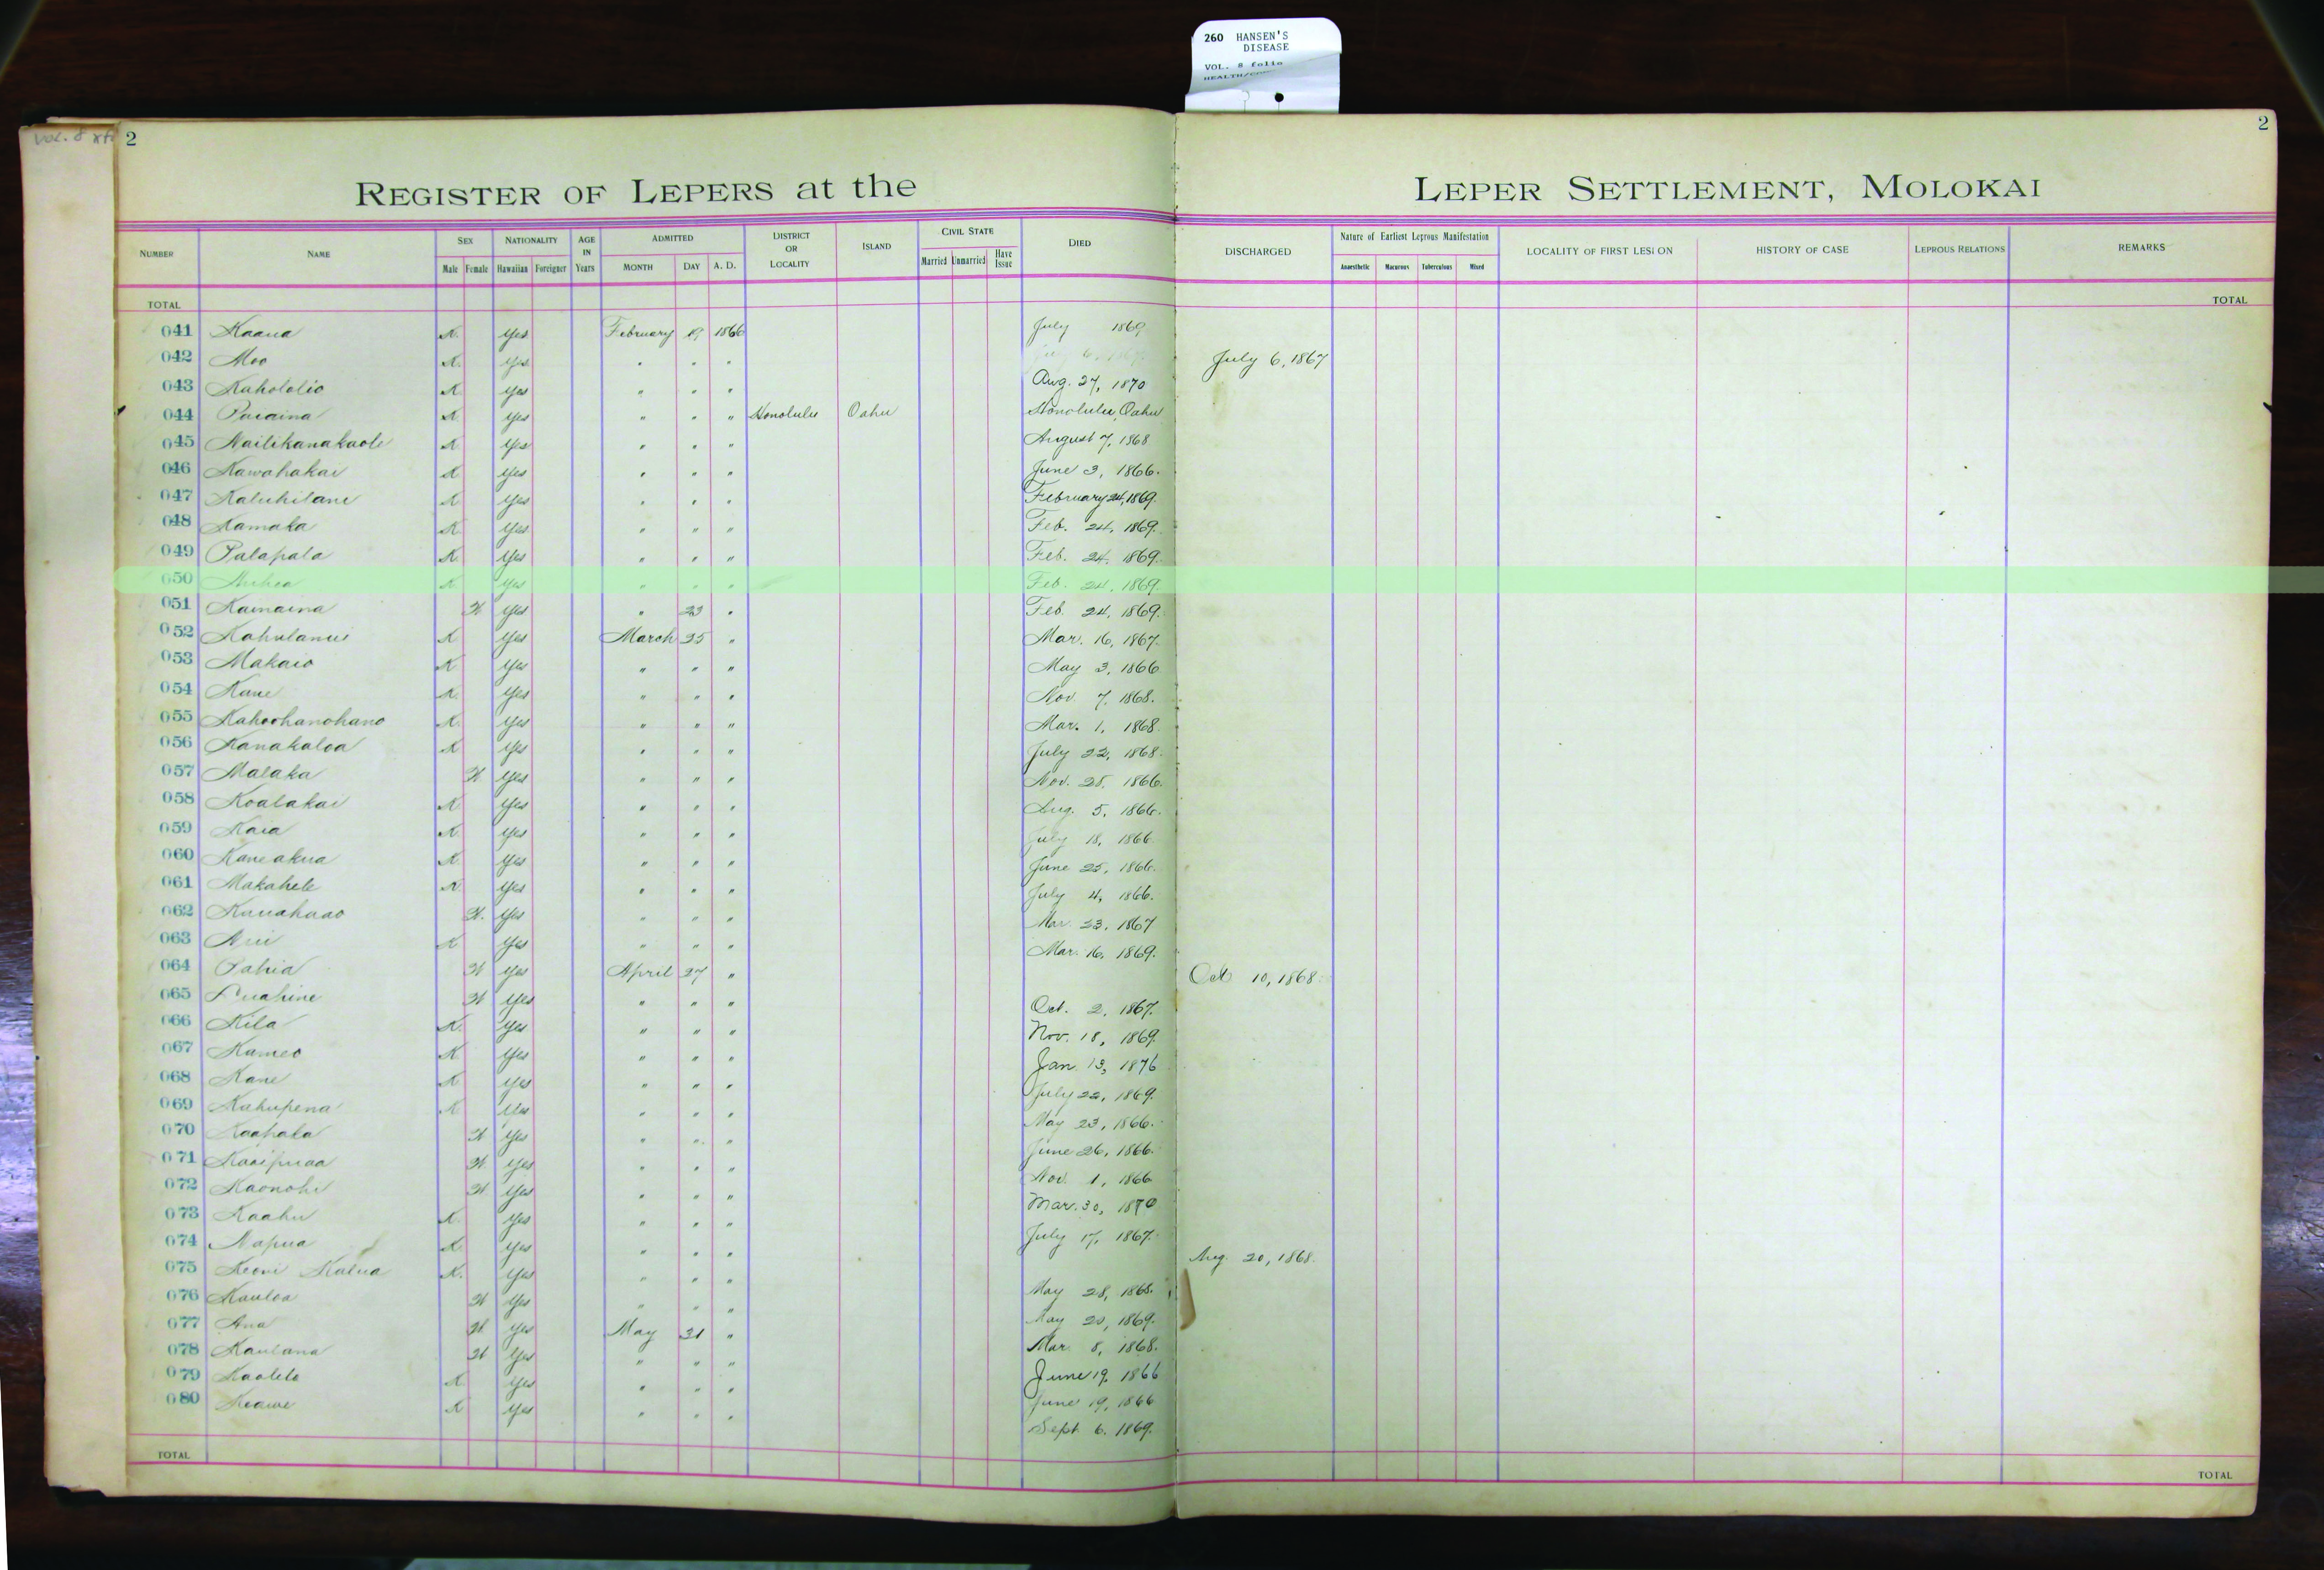 260 HANSEN'S
DISEASE
VOL. 8 folio
Vol. 8
2
2
REGISTER OF LEPERS at the LEPER SETTLEMENT, MOLOKAI
NUMBER NAME SEX NATIONALITY AGE IN Years ADMITTED DISTRICT OR LOCALITY ISLAND CIVIL STATE DIED DISCHARGED Nature of Earliest Leprous Manifestation LOCALITY OF FIRST LESION HISTORY OF CASE LEPROUS RELATIONS REMARKS
Male Female Hawaiian Foreigner MONTH DAY A. D. Married Unmarried Have Issue Anaesthetic Macurous Tuberculous Mixed
TOTAL TOTAL
041 Kaaua K. Yes February 19 1866 July 1869
042 Moo K. Yes " " " July 6, 1867
043 Kahololio K Yes " " " Aug. 27, 1870
044 K Yes " " " Honolulu Oahu Honolulu, Oahu
045 Nailikanakaole K Yes " " " August 7, 1868
046 Kawahakai K Yes " " " June 3, 1866.
047 Kaluhilani K Yes " " " February 24, 1869.
048 Kamaka K Yes " " " Feb. 24, 1869.
049 Palapala K Yes " " " Feb. 24, 1869.
050 K Yes " " " Feb. 24, 1869.
051 Kamaina W Yes " 23 " Feb. 24, 1869.
052 Kahulanui K Yes March 25 " Mar. 16, 1867.
053 Makaio K Yes " " " May 3, 1866
054 Kane K. Yes " " " Nov. 7, 1868.
055 Kahoohanohano K. Yes " " " Mar. 1, 1868.
056 Kanakaloa K Yes " " " July 22, 1868.
057 Malaka W Yes " " " Nov. 28, 1866.
058 Koalakai K Yes " " " Aug. 5, 1866.
059 Kaia K. Yes " " " July 18, 1866.
060 Kaneakua K Yes " " " June 25, 1866.
061 Makahele K Yes " " " July 4, 1866.
062 Kauahaao W. Yes " " " Mar. 23, 1867
063 K Yes " " " Mar. 16, 1869.
064 Pahia W Yes April 27 " Oct 10, 1868.
065 Luahine W Yes " " " Oct. 2, 1867.
066 Kila K. Yes " " " Nov. 18, 1869.
067 Kameo K Yes " " " Jan 13, 1876
068 Kane K Yes " " " July 22, 1869.
069 Kahupena K Yes " " " May 23, 1866.
070 Kaahala W Yes " " " June 26, 1866.
071 Kaaipuaa W. Yes " " " Nov. 1, 1866
072 Kaonohi W Yes " " " Mar. 30, 1870
073 Kaahu K. Yes " " " July 17, 1867.
074 Napua K Yes " " " Aug. 20, 1868.
075 Keoni Kalua K. Yes " " " May 28, 1868.
076 Kauloa W Yes " " " May 20, 1869.
077 Ana W. Yes May 31 " Mar. 8, 1868.
078 Kaulana W Yes " " " June 19, 1866
079 Kaolelo K Yes " " " June 19, 1866
080 Keawe K Yes " " " Sept 6, 1869.
TOTAL TOTAL